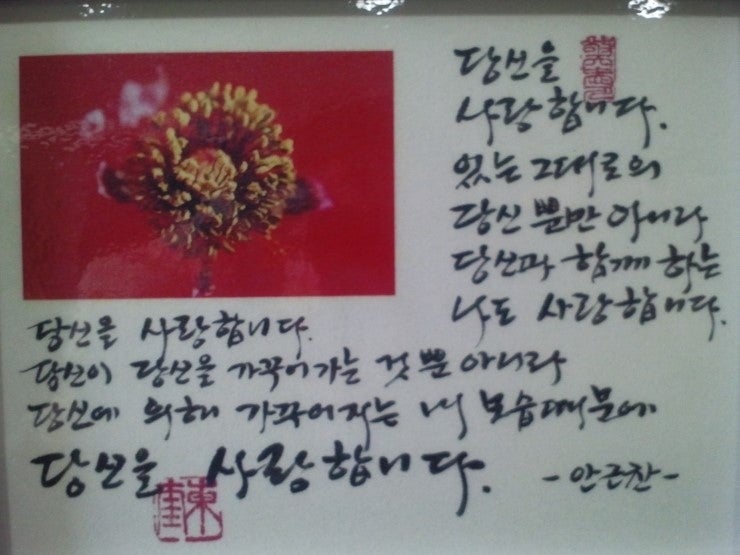 당신을
사랑합니다.
있는 그대로의
당신 뿐만 아니라
당신과 함께 하는
나도 사랑합니다.
당신을 사랑합니다.
당신이 당신을 가꾸어가는 것 뿐 아니라
당신에 의해 가꾸어지는 내 모습때문에
당신을 사랑합니다.
-안근찬-